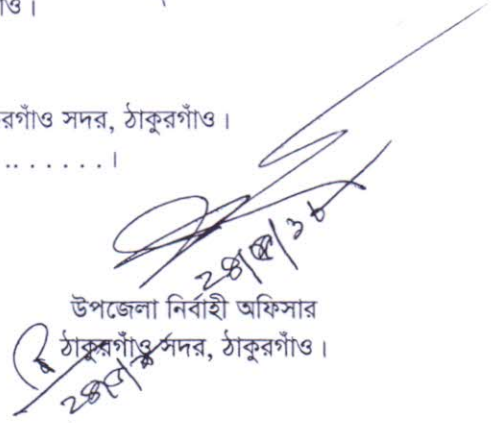 ও।
রগাঁও সদর, ঠাকুরগাঁও।
.. . . . . . ।
উপজেলা নির্বাহী অফিসার
ঠাকুরগাঁও সদর, ঠাকুরগাঁও।